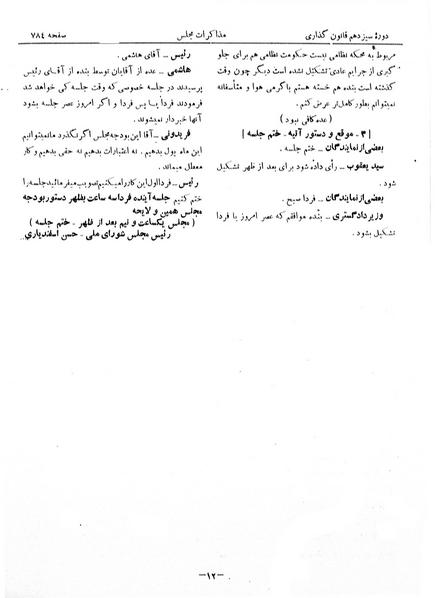 دورهٔ سیزدهم قانون گذاری
مذاکرات مجلس
صفحه ۷۸٤
مربوط به محکمه نظامی نیست حکومت نظامی هم برای جلو
گیری از جرایم عادی تشکیل نشده است دیگر چون وقت
گذشته است بنده هم خسته هستم باگرمی هوا و متأسفانه
نمیتوانم بطور کاملتر عرض کنم.
(عده کافی نبود)
[ ۳ - موقع و دستور آتیه - ختم جلسه ]
بعضی از نمایندگان - ختم جلسه.
سید یعقوب - رأی داده شود برای بعد از ظهر تشکیل
شود.
بعضی از نمایندگان - فردا صبح.
وزیر دادگستری - بنده موافقم که عصر امروز یا فردا
تشکیل بشود.
رئیس - آقای هاشمی.
هاشمی - عده از آقایان توسط بنده از آقای رئیس
پرسیدند در جلسه خصوصی که وقت جلسه کی خواهد شد
فرمودند فردا یا پس فردا و اگر امروز عصر جلسه بشود
آنها خبردار نمیشوند.
فریدونی - آقا این بودجه مجلس اگر نگذرد ما نمیتوانیم
این ماه پول بدهیم. نه اعتبارات بدهیم نه حقی بدهیم و کار
معطل میماند.
رئیس - فردا اول این کار را میکنیم تصویب میفرمائید جلسه را
ختم کنیم جلسه آینده فردا سه ساعت بظهر دستور بودجه
مجلس همین و لایحه
( مجلس یکساعت و نیم بعد از ظهر - ختم جلسه )
رئیس مجلس شورای ملی - حسن اسفندیاری
-۱۲-